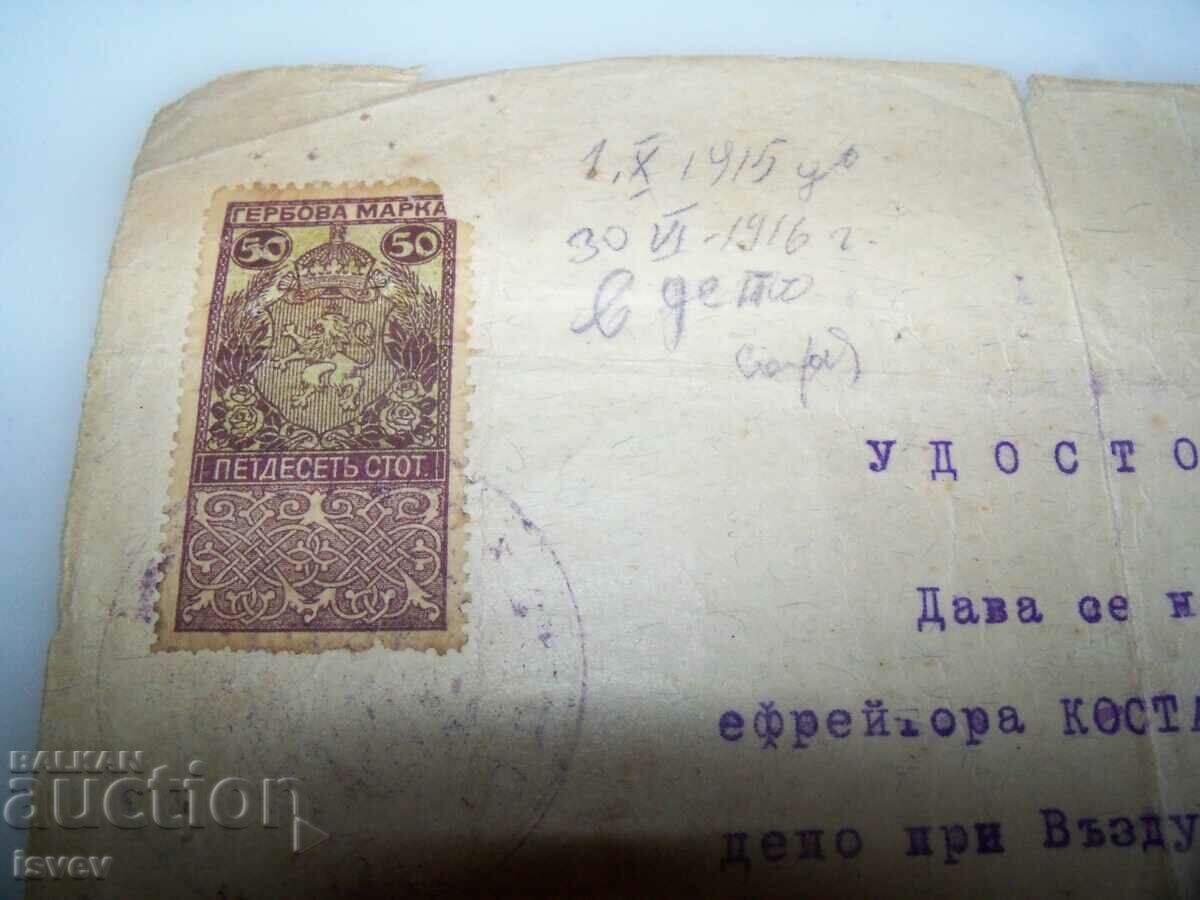 ГЕРБОВА МАРКА
50 50
ПЕТДЕСЕТЬ СТОТ.
1.X 1915 до
30 VI - 1916 г.
в депо
УДОСТО
Дава се н
ефрейтора КОСТА
дено при Възду
BALKAN
auction
isvev